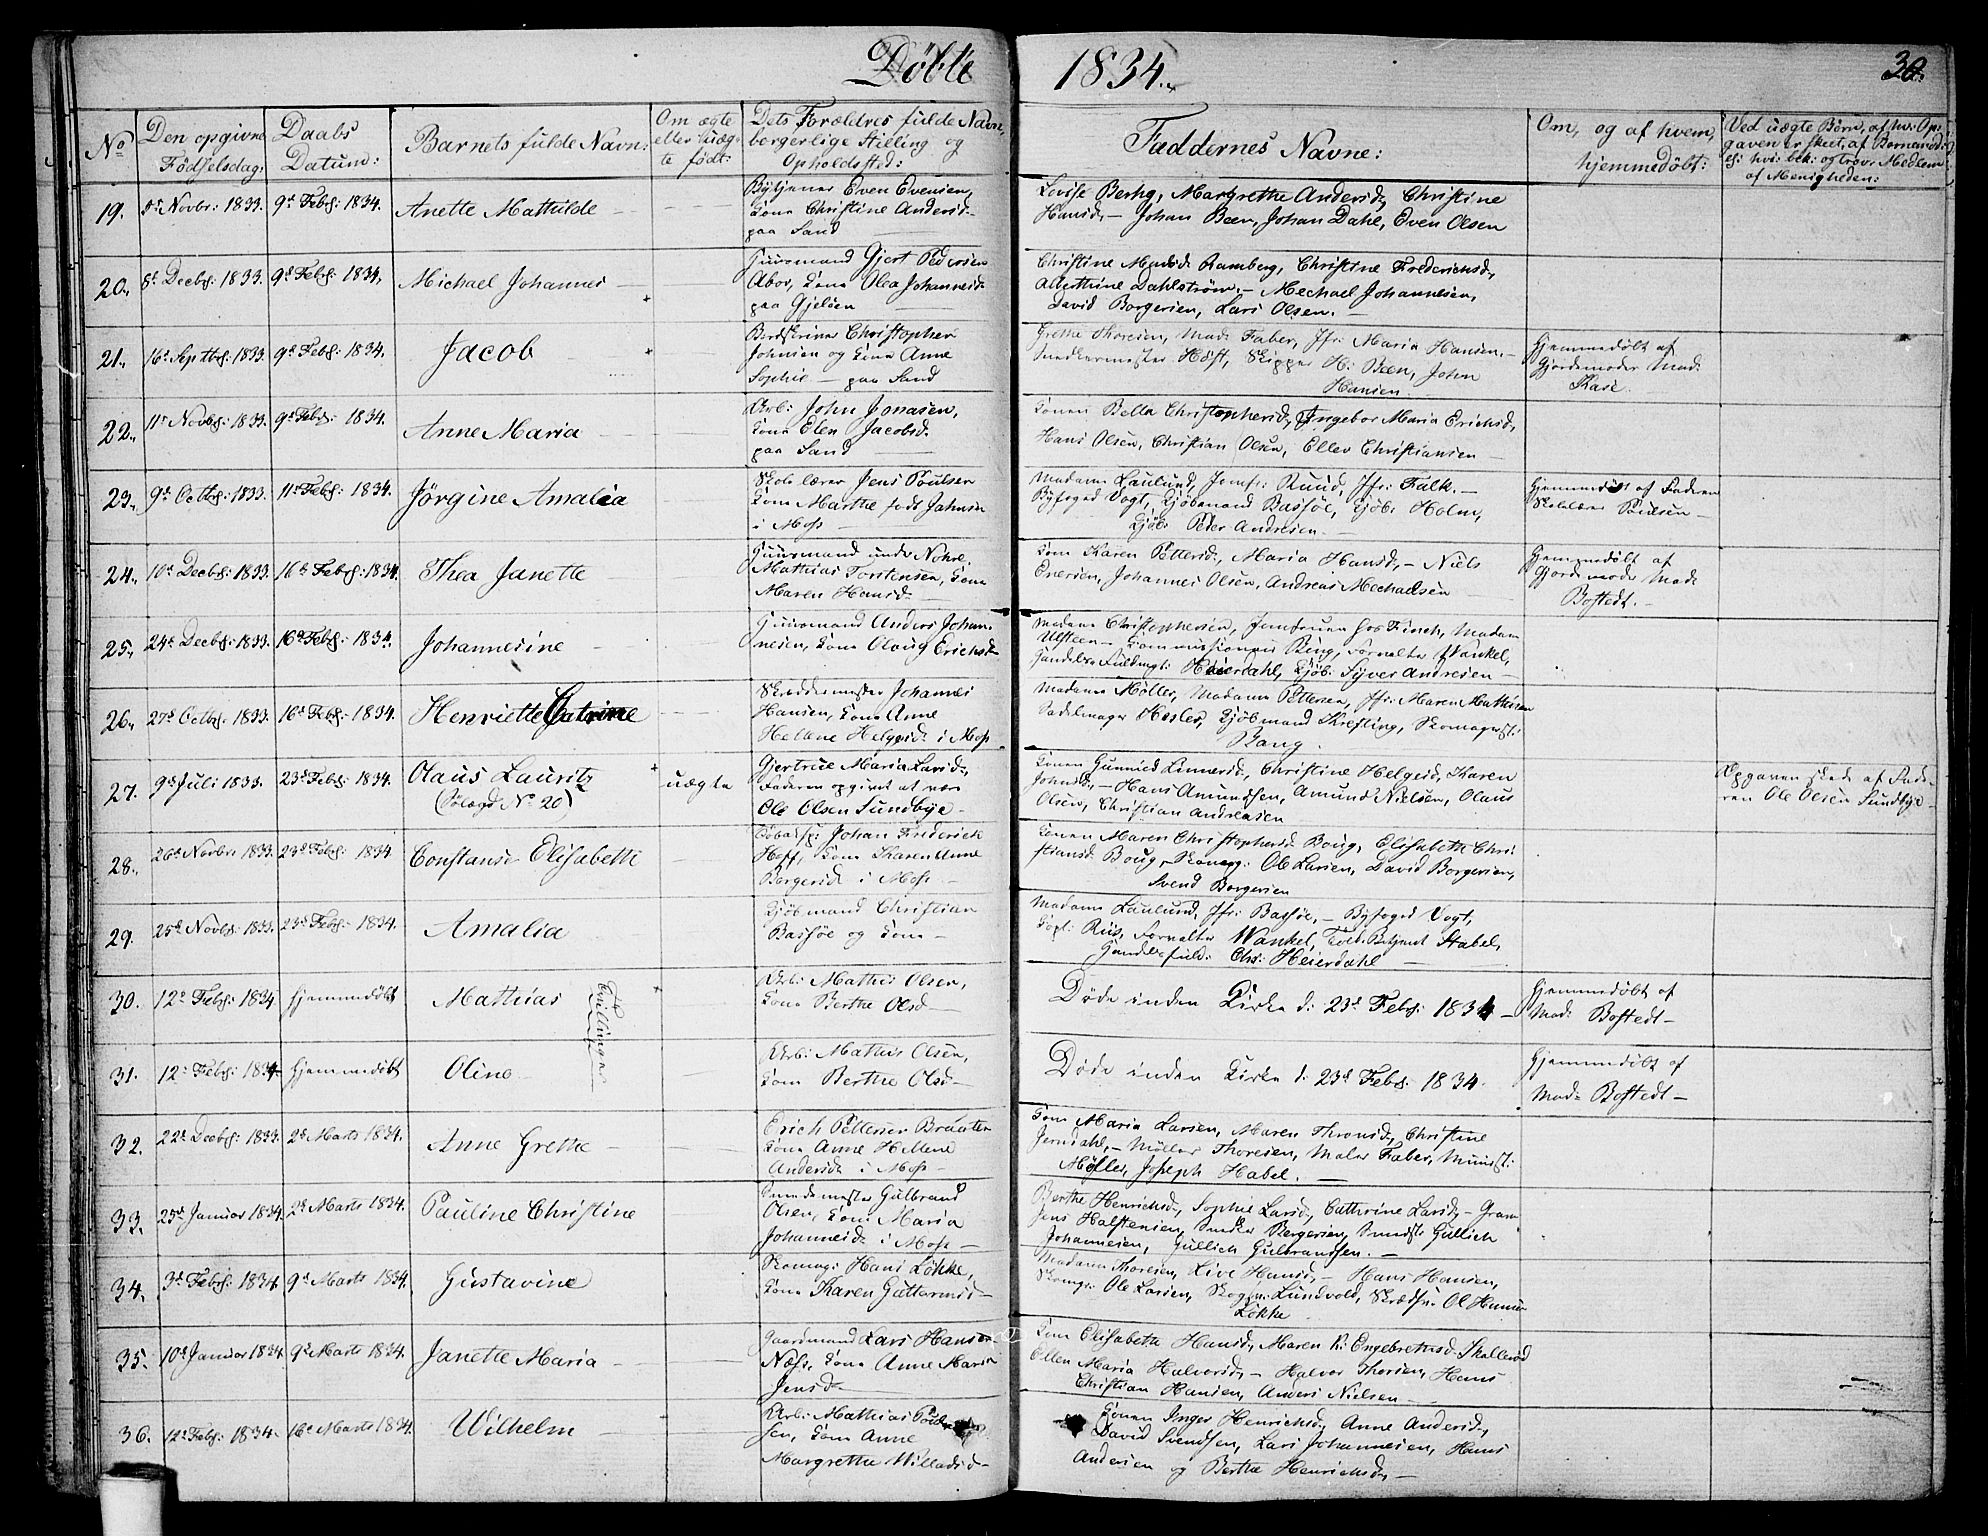 Døbte 1834.
30.
No
Den opgivne Fødselsdag:
Daabs Datum:
Barnets fulde Navn:
Om ægte eller uæg- te født:
Dets Forældres fulde Navn, borgerlige Stilling og Opholdssted:
Faddernes Navne:
Om, og af hvem, hjemmedøbt:
Ved uægte Børn, af hv: Op- gaven er skeet, af
af Menigheden:
19. Novbr: 1833. 9d Febr: 1834. Anette Mathilde
Even Evensen,
Kone Christine Andersd.
paa Sand
Lovise Berhg, Margrethe Andersd, Christine
Hansd, – Johan Been, Johan Dahl, Even Olsen
20. Decbr: 1833. 9d Febr: 1834. Michael Johannes
Huusmand Gjert Pedersen
Kone Olea Johannesd.
paa Gjeløen
Christine Madsd. Ramberg, Christine Fredericksd,
Dahlstrøm. – Mechael Johannesen,
David Borgersen, Lars Olsen. –
21. 16d Septbr: 1833. 9d Febr: 1834. Jacob
Christopher
Johnsen og Kone Anne
Sophie – paa Sand
Grethe Thoresen, Mad: Faber, Jfr: Maria Hansen. –
Snedkermester Høst, Skipper H: Been, John
Hansen
Hjemmedøbt af
Gjordemoder Mad:
22. 11d Novbr: 1833. 9d Febr: 1834. Anne Maria
Arb: John Jonasen,
Kone Elen Jacobsd.
paa Sand
Konen Bella Christophersd, Ingebor Maria Erichsd,
Hans Olsen, Christian Olsen, Ellev Christiansen –
23. 9d Octbr: 1833. 11d Febr: 1834. Jørgine Amalia
Skolelærer Jens Poulsen
Kone Marthe født
i Moss
Madame Laulund, Jomfr: Ruud, Jfr: Falk. –
Byfoged Vogt, Kjøbmand Bassøe, Kjøb: Holm,
Kjøb: Peder Andresen
Hjemmedøbt af Faderen
Skolelærer Poulsen –
24. 10d Decbr: 1833. 16d Febr: 1834. Thea Janette
Huusmand under Nohre
Mathias Torstensen, Kone
Maren Hansd.
Kone Karen Pettersd, Maria Hansd, – Niels
Enersen, Johannes Olsen, Andreas Mechaelsen
Hjemmedøbt af
Gjordemoder Mad:
Bostedt. –
25. 24d Decbr: 1833. 16d Febr: 1834. Johannesine
Huusmand Anders Johan-
nesen, Kone Olaug Erichsd.
Madame Christophersen, Jomfruen hos Finch, Madam
Ulsteen – Commissionair Reng, Forvalter Wankel,
Handelsfuldmgt: Heierdahl, Kjøb: Syver Andresen –
26. 27d Octbr: 1833. 16d Febr: 1834. Henriette Catrine
Skræddermester Johannes
Hansen, Kone Anne
Hellene Helgesd. i Moss
Madame Møller, Madame Pettersen, Jfr: Maren Mathisen
Sadelmager Hesler, Kjøbmand Krefting,
Rang.
27. 9d Juli 1833. 23d Febr: 1834. Olaus Lauritz
(Sølægd No 20)
uægte
Gjertrue Maria Larsd,
Faderen opgivet at være
Ole Olsen Sundbye –
Konen Gunnild Linnersd, Christine Helgesd, Karen
Johnsd, – Hans Amundsen, Amund Nielsen, Olaus
Olsen, Christian Andreasen
Opgaven skede af Fade-
ren Ole Olsen Sundbye –
28. 26d Novbr: 1833. 23d Febr: 1834. Constanse Elisabeth
Johan Frederick
Hoff, Kone Karen Anne
Borgersd. i Moss
Konen Maren Christophersd Boug, Elisabeth Chri-
stiansd. Boug, – Ole Larsen, David Borgersen,
Svend Borgersen
29. 25d Novbr: 1833. 23d Febr: 1834. Amalia
Kjøbmand Christian
Bassøe og Kone –
Madame Laulund, Jfr: Bassøe, – Byfoged Vogt,
Capt: Riis, Forvalter Wankel, Told-Betjent Stabel,
Handelsfuld: Chr: Heierdahl –
30. 12d Febr: 1834. Hjemmedøbt Mathias
Tvillinger
Arb: Mathis Olsen,
Kone Berthe Olsd. –
Døde inden Kirke d: 23d Febr: 1834 –
Hjemmedøbt af
Mad: Bostedt –
31. 12d Febr: 1834. Hjemmedøbt Oline
Arb: Mathis Olsen,
Kone Berthe Olsd. –
Døde inden Kirke d: 23d Febr: 1834.
Hjemmedøbt af
Mad: Bostedt –
32. 22d Decbr: 1833. 2d Marts 1834. Anne Grethe
Erich Pettersen Braaten
Kone Anne Hellene
Andersd. i Moss
Kone Maria Larsen, Maren Thronsd, Christine
Jerndahl, – Møller Thoresen, Maler Faber,
Møller, Joseph Habel. –
33. 25d Januar 1834. 2d Marts 1834. Pauline Christine
Smedemester Gulbrand
Olsen, Kone Maria
Johannesd. i Moss –
Berthe Henrichsd, Sophie Larsd, Cathrine Larsd, –
Jens Halstensen, Snedker Borgersen, Gullich
Johannesen, Gullich Gulbrandsen. –
34. 3d Febr: 1834. 9d Marts 1834. Gustavine
Skomag: Hans Løkke,
Kone Karen Guttormsd. –
Madame Thoresen, Live Hansd, – Hans Hansen,
Skomgr: Ole Larsen, Lundvold, Ol Hansen
Løkke
35. 10d Januar 1834. 9d Marts 1834. Janette Maria
Gaardmand Lars Hansen
Næss, Kone Anne Maria
Jensd. –
Kone Elisabeth Hansd, Maren K: Engebretsd. Skallerød
Ellen Maria Halvorsd, – Halvor Thorsen, Hans
Christian Hansen, Anders Nielsen –
36. 12d Febr: 1834. 16d Marts 1834. Wilhelm
Arb: Mathias
sen, Kone Anne
Margrethe Willadsd. –
Konen Inger Henrichsd, Anne Andersd,
David Svendsen, Lars Johannesen, Hans
Andersen og Berthe Henrichsd, –